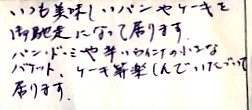 いつも美味しいパンやケーキを
御馳走になって居ります。
パン・ドミや辛いウインナの小さな
バケット、ケーキ等楽しんでいただいて
居ります。